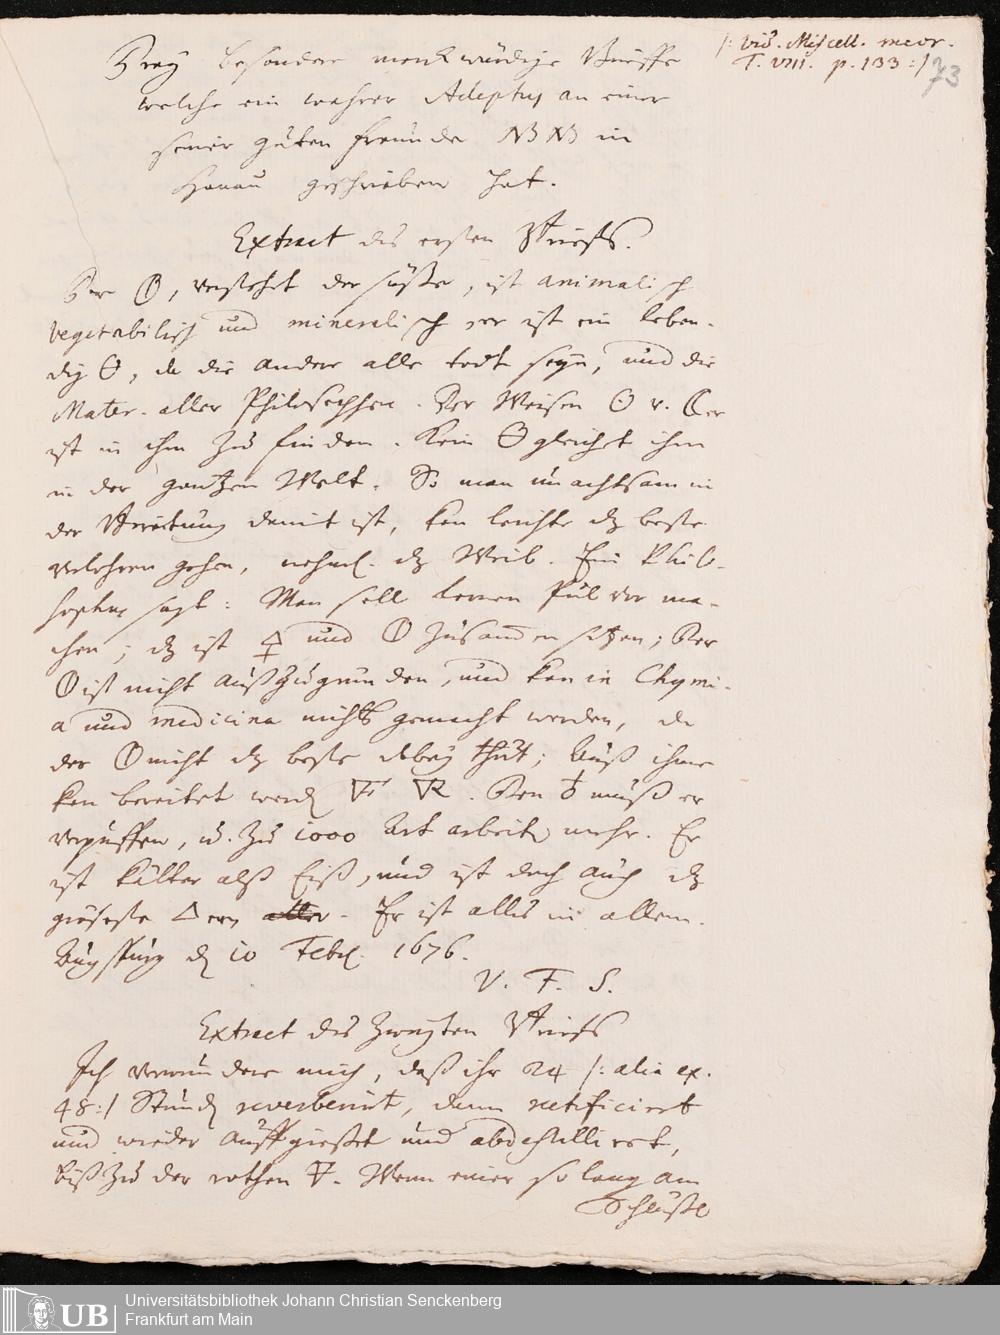 /: vid. Miscell. meor.
T. VIII. p. 133 :/
73
Zwey besondere merckwürdige Brieffe
welche ein wahrer Adeptus an einen
seiner guten Freunde NB NB in
Hanau geschrieben hat.
Extract des ersten Brieffs.
Der 🜔, verstehet der süsse, ist animalisch
vegetabilisch und mineralisch er ist ein leben-
dig 🜔, da die andere alle todt seyn, und die
Mater. aller Philosophen. Der Weisen
ist in ihm zu finden. Kein 🜔 gleichet ihm
in der gantzen Welt. So man unachtsam in
der Bereitung damit ist, kan leichte dz beste
verlohren gehen, nehml. dz Weib. Ein Philo-
sophus sagt: Man soll einen Pulver ma-
chen; dz ist 🜍 und zusammen setzen; Der
ist nicht außzugründen, und kan in Chymi-
a und medicina nichts gemacht werden, da
der nicht dz beste dabey thut; Auß ihme
kan bereitet werden 🜅 🜆. Den ♁ muß er
verpuffen, u. zu 1000 Art arbeiten mehr. Er
ist kälter alß Eiß, und ist doch auch dz
gröseste 🜂 Er ist alles in allem.
Augspurg d 10 Febr. 1676.
V. F. S.
Extract des zweyten Brieffs
Ich verwundere mich, daß ihr 24 /: alia ex.
48 :/ Stund reverberirt, dann rectificiret
und wieder auffgiesset und abdestillieret,
biß zu der rothen 🜃. Wenn einer so lang am
Schlüssel
Universitätsbibliothek Johann Christian Senckenberg
UB Frankfurt am Main